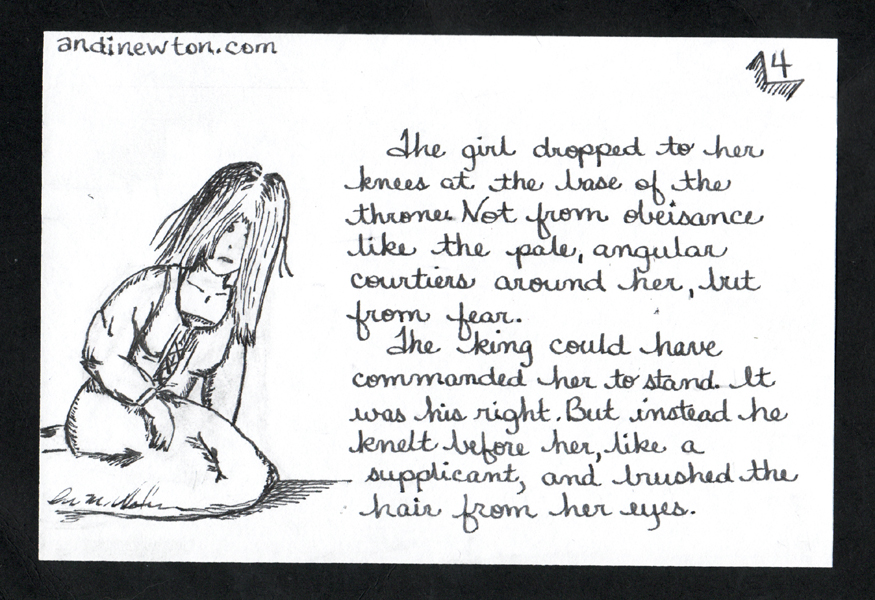 andinewton.com
14
The girl dropped to her
knees at the base of the
throne. Not from obeisance
like the pale, angular
courtiers around her, but
from fear.
The king could have
commanded her to stand. It
was his right. But instead he
knelt before her, like a
supplicant, and brushed the
hair from her eyes.